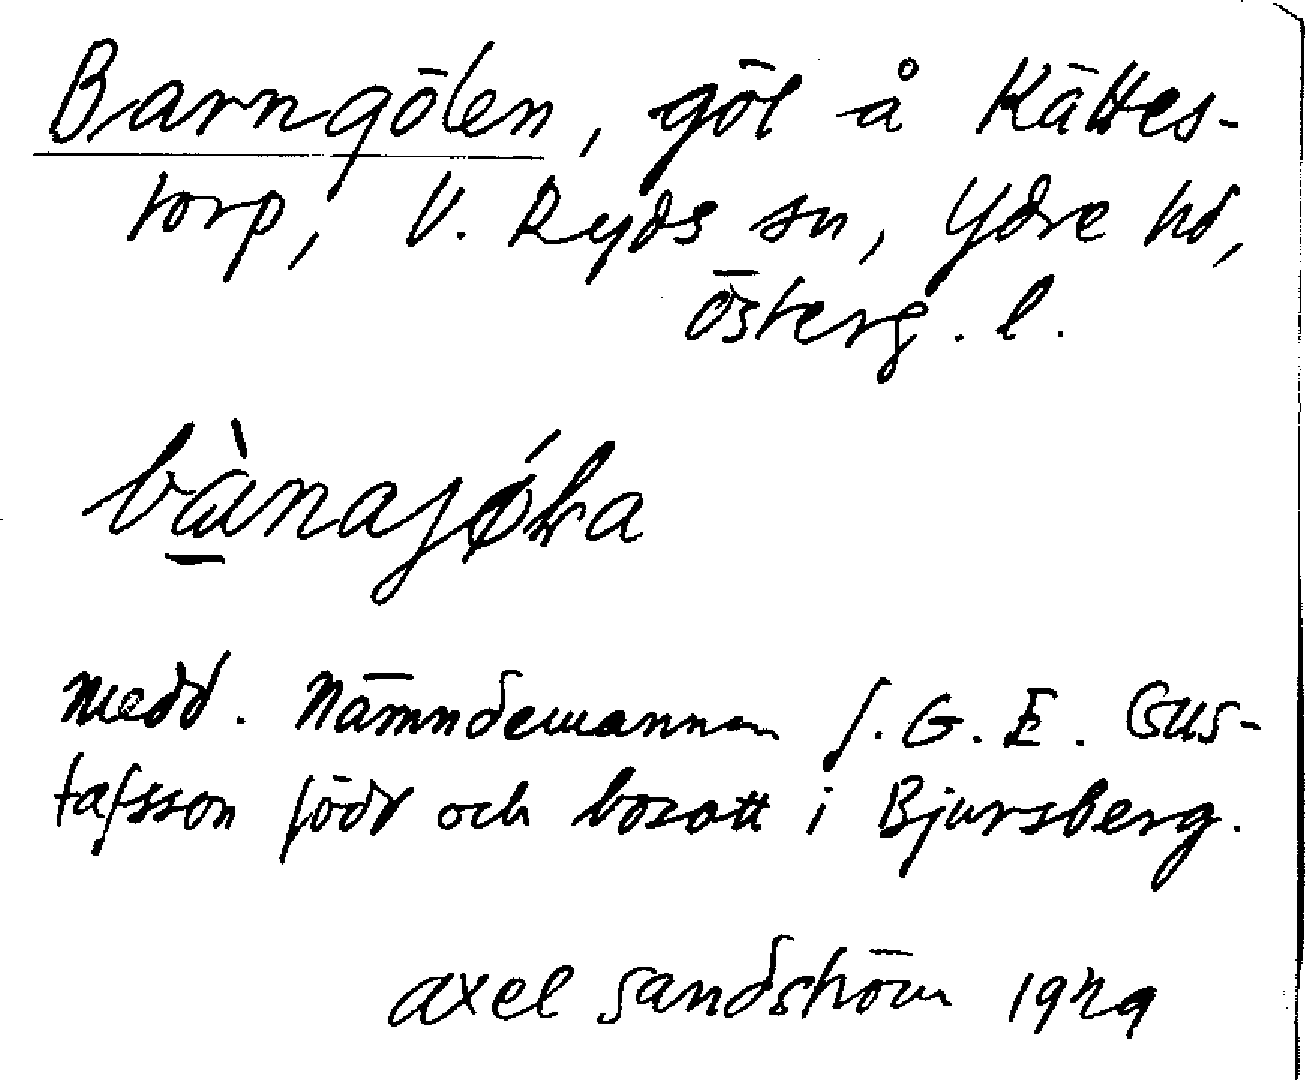 Barngölen, göl å Kättes-
torp, V. Ryds sn, Ydre hd,
Österg. l.
bànajǿka
Medd. Nämndemannen J. G. E. Gus-
tafsson född och bosatt i Bjursberg.
Axel Sandström 1929